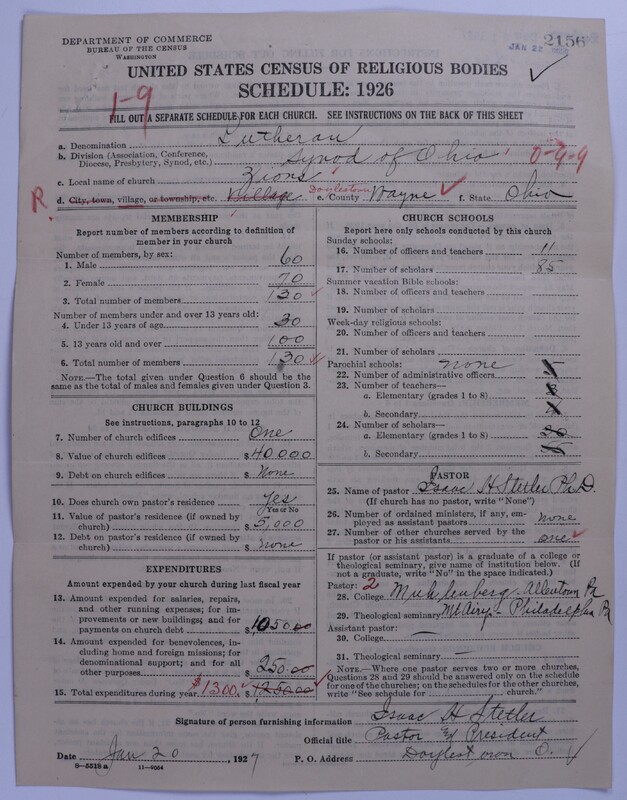 DEPARTMENT OF COMMERCE
BUREAU OF THE CENSUS
WASHINGTON
JAN 22
2156
UNITED STATES CENSUS OF RELIGIOUS BODIES
SCHEDULE: 1926
1-9
FILL OUT A SEPARATE SCHEDULE FOR EACH CHURCH. SEE INSTRUCTIONS ON THE BACK OF THIS SHEET
a. Denomination Lutheran
b. Division (Association, Conference, Diocese, Presbytery, Synod, etc.) Synod of Ohio 0-9-9
c. Local name of church Zions
R. d. City, town, village, or township, etc. Village Doylestown e. County Wayne f. State Ohio
MEMBERSHIP
Report number of members according to definition of
member in your church
Number of members, by sex:
1. Male 60
2. Female 70
3. Total number of members 130
Number of members under and over 13 years old:
4. Under 13 years of age 30
5. 13 years old and over 100
6. Total number of members 130
NOTE.—The total given under Question 6 should be
the same as the total of males and females given under Question 3.
CHURCH BUILDINGS
See instructions, paragraphs 10 to 12
7. Number of church edifices One
8. Value of church edifices $40,000
9. Debt on church edifices $ None
10. Does church own pastor's residence Yes
Yes or No
11. Value of pastor's residence (if owned by
church) $5,000
12. Debt on pastor's residence (if owned by
church) $ None
EXPENDITURES
Amount expended by your church during last fiscal year
13. Amount expended for salaries, repairs,
and other running expenses; for im-
provements or new buildings; and for
payments on church debt $1050.00
14. Amount expended for benevolences, in-
cluding home and foreign missions; for
denominational support; and for all
other purposes $250.00
15. Total expenditures during year $1300 $1250.00
CHURCH SCHOOLS
Report here only schools conducted by this church
Sunday schools:
16. Number of officers and teachers 11
17. Number of scholars 85
Summer vacation Bible schools:
18. Number of officers and teachers
19. Number of scholars
Week-day religious schools:
20. Number of officers and teachers
21. Number of scholars
Parochial schools: none
22. Number of administrative officers
23. Number of teachers—
a. Elementary (grades 1 to 8)
b. Secondary
24. Number of scholars—
a. Elementary (grades 1 to 8)
b. Secondary
PASTOR
25. Name of pastor Isaac H Stetler Ph.D.
(If church has no pastor, write "None")
26. Number of ordained ministers, if any, em-
ployed as assistant pastors none
27. Number of other churches served by the
pastor or his assistants one
If pastor (or assistant pastor) is a graduate of a college or
theological seminary, give name of institution below. (If
not a graduate, write "No" in the space indicated.)
Pastor: 2
28. College Muhlenberg - Allentown Pa
29. Theological seminary Mt Airy - Philadelphia Pa
Assistant pastor:
30. College —
31. Theological seminary —
NOTE.—Where one pastor serves two or more churches,
Questions 28 and 29 should be answered only on the schedule
for one of the churches; on the schedules for the other churches,
write "See schedule for church."
Signature of person furnishing information Isaac H Stetler
Official title Pastor & President
Date Jan 20, 1927 P. O. Address Doylestown O.
8-5518 a 11-9024